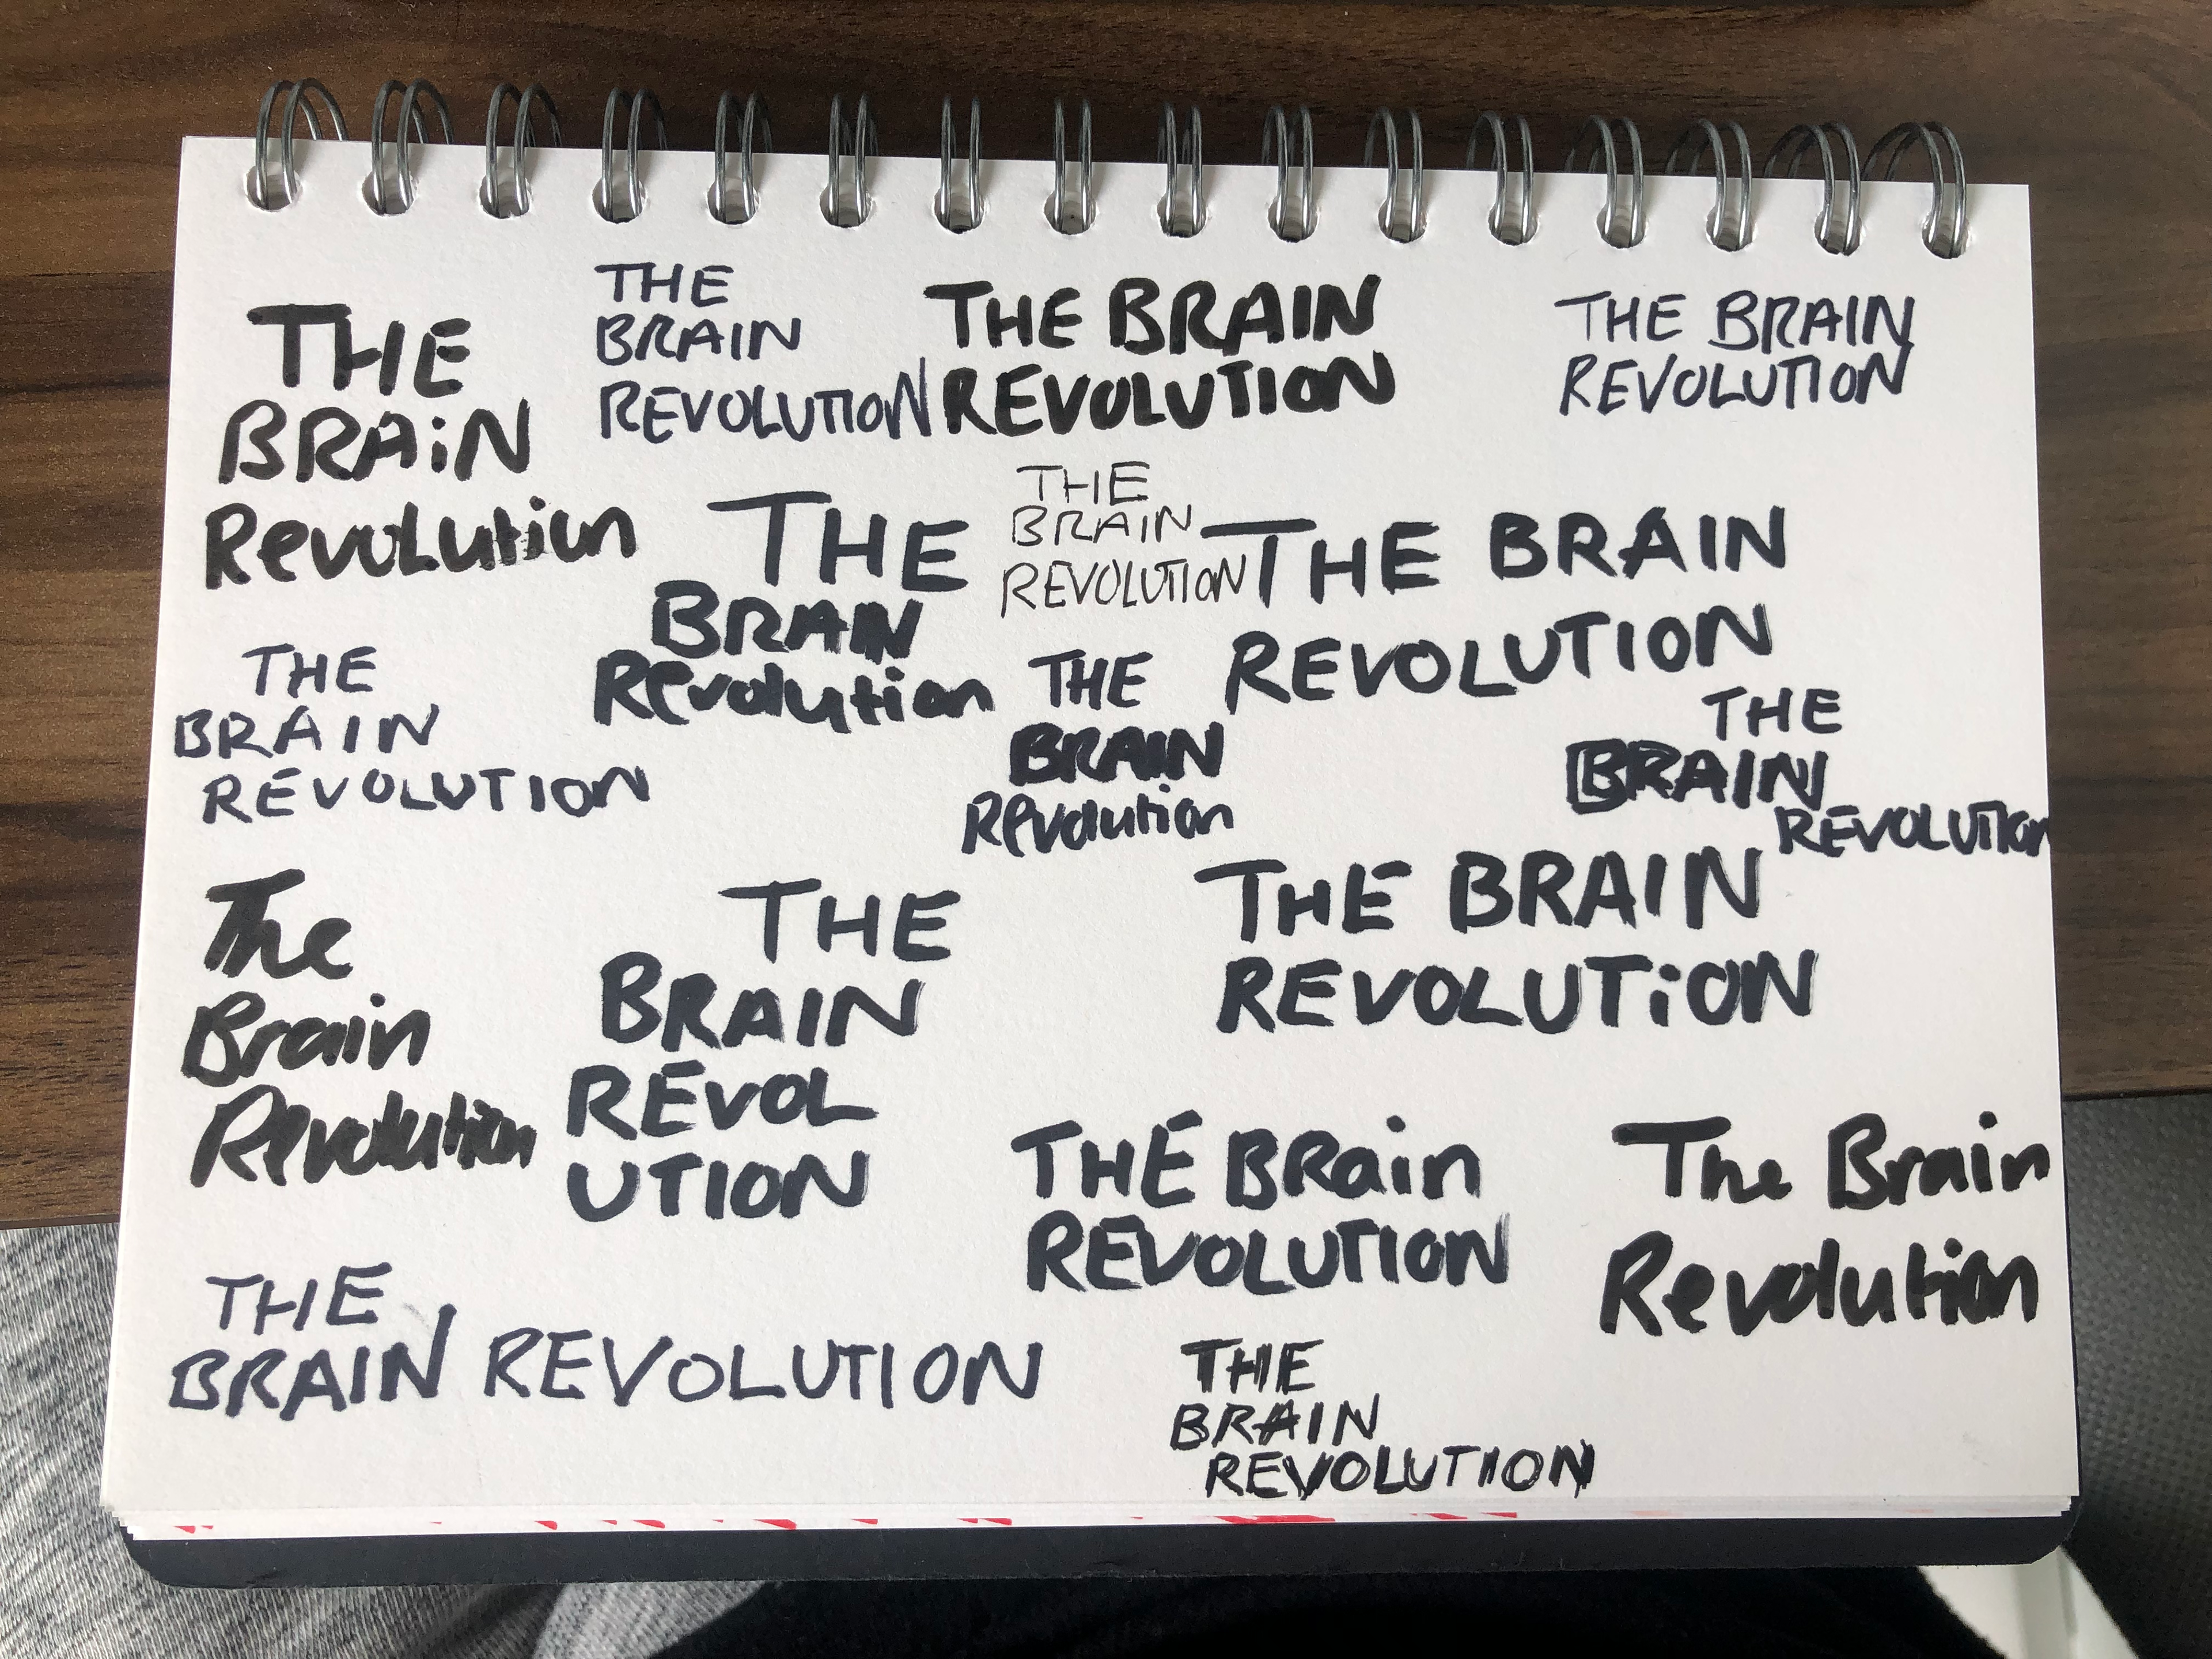 THE
BRAiN
Revolution
THE
BRAIN
REVOLUTION
THE BRAIN
REVOLUTION
THE BRAIN
REVOLUTION
THE
BRAIN
Revolution
THE
BRAIN
REVOLUTION
THE BRAIN
REVOLUTION
THE
BRAIN
REVOLUTION
THE
BRAIN
Revolution
THE
BRAIN
REVOLUTION
The
Brain
Revolution
THE
BRAIN
REVOL
UTION
THE BRAIN
REVOLUTiON
THE BRain
REVOLUTION
The Brain
Revolution
THE
BRAIN REVOLUTION
THE
BRAIN
REVOLUTION